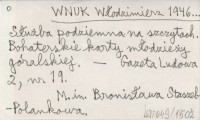 WNUK Włodzimierz 1946...
Służba podziemna na szczytach.
Bohaterskie karty młodzieży
góralskiej. — Gazeta Ludowa
2, nr 19.
M.in. Bronisława Staszel
-Polankowa.